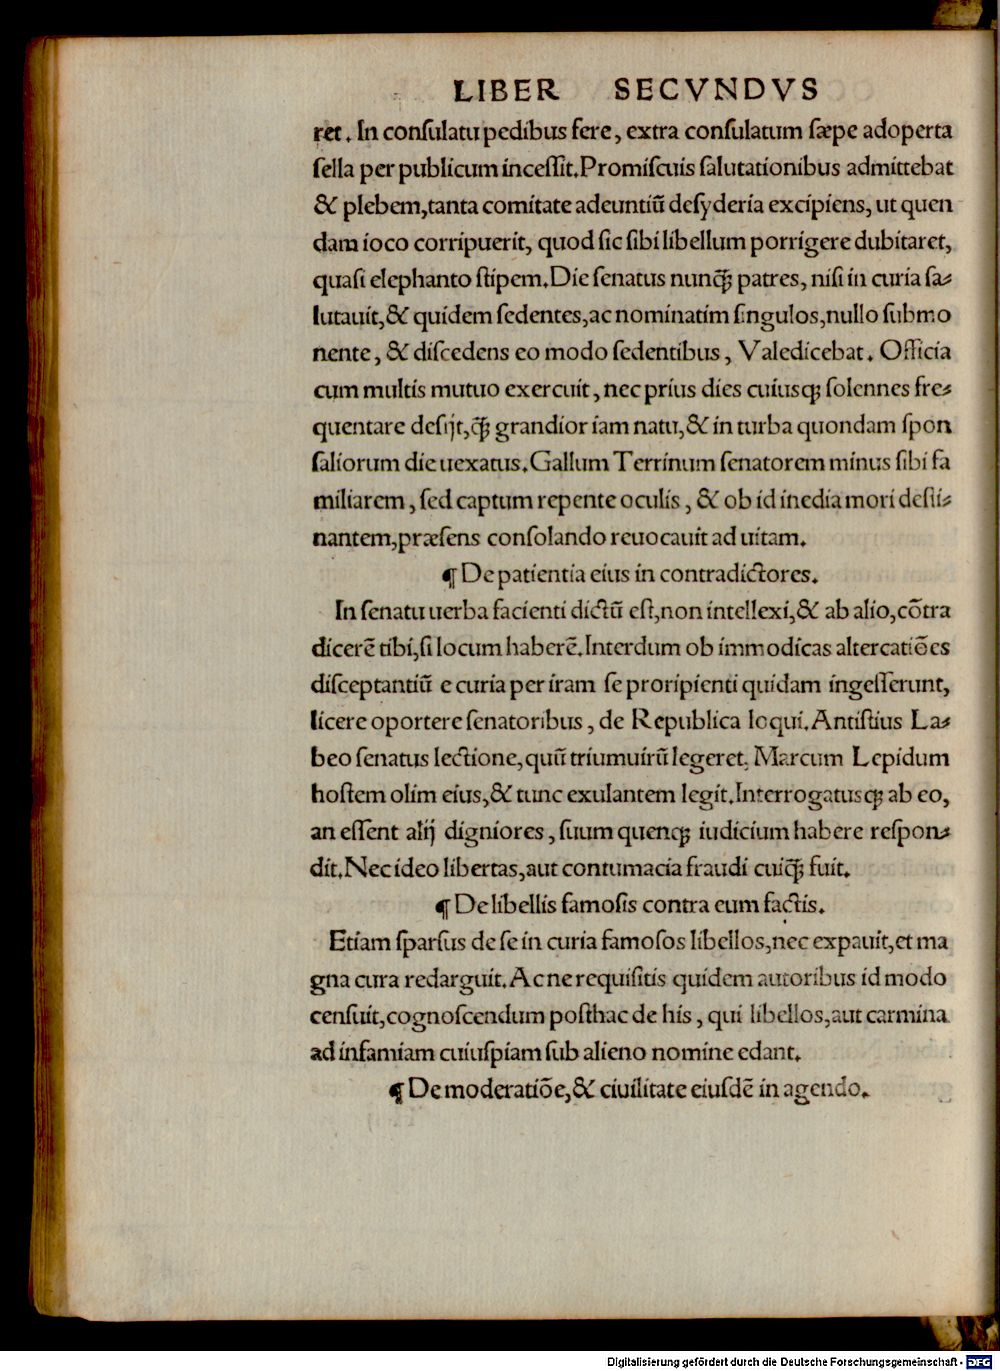 LIBER SECVNDVS
ret. In conſulatu pedibus fere, extra conſulatum ſæpe adoperta
ſella per publicum inceſſit. Promiſcuis ſalutationibus admittebat
& plebem, tanta comitate adeuntiū deſyderia excipiens, ut quen
dam ioco corripuerit, quod ſic ſibi libellum porrigere dubitaret,
quaſi elephanto ſtipem. Die ſenatus nunq̄ꝫ patres, niſi in curia ſa⸗
lutauit, & quidem ſedentes, ac nominatim ſingulos, nullo ſubmo
nente, & diſcedens eo modo ſedentibus, Valedicebat. Officia
cum multis mutuo exercuit, nec prius dies cuiusqꝫ ſolennes fre⸗
quentare deſijt, q̄ꝫ grandior iam natu, & in turba quondam ſpon
ſaliorum die uexatus. Gallum Terrinum ſenatorem minus ſibi fa
miliarem, ſed captum repente oculis, & ob id inedia mori deſti⸗
nantem, præſens conſolando reuocauit ad uitam.
¶ De patientia eius in contradictores.
In ſenatu uerba facienti dictū eſt, non intellexi, & ab alio, cōtra
dicerē tibi, ſi locum haberē. Interdum ob immodicas altercatiōes
diſceptantiū e curia per iram ſe proripienti quidam ingeſſerunt,
licere oportere ſenatoribus, de Republica loqui. Antiſtius La⸗
beo ſenatus lectione, quū triumuirū legeret. Marcum Lepidum
hoſtem olim eius, & tunc exulantem legit. Interrogatusqꝫ ab eo,
an eſſent alij digniores, ſuum quenqꝫ iudicium habere reſpon⸗
dit. Nec ideo libertas, aut contumacia fraudi cuiq̄ꝫ fuit.
¶ De libellis famoſis contra eum factis.
Etiam ſparſus de ſe in curia famoſos libellos, nec expauit, et ma
gna cura redarguit. Ac ne requiſitis quidem autoribus id modo
cenſuit, cognoſcendum poſthac de his, qui libellos, aut carmina
ad infamiam cuiuſpiam ſub alieno nomine edant.
¶ De moderatiōe, & ciuilitate eiuſdē in agendo.
Digitalisierung gefördert durch die Deutsche Forschungsgemeinschaft - DFG